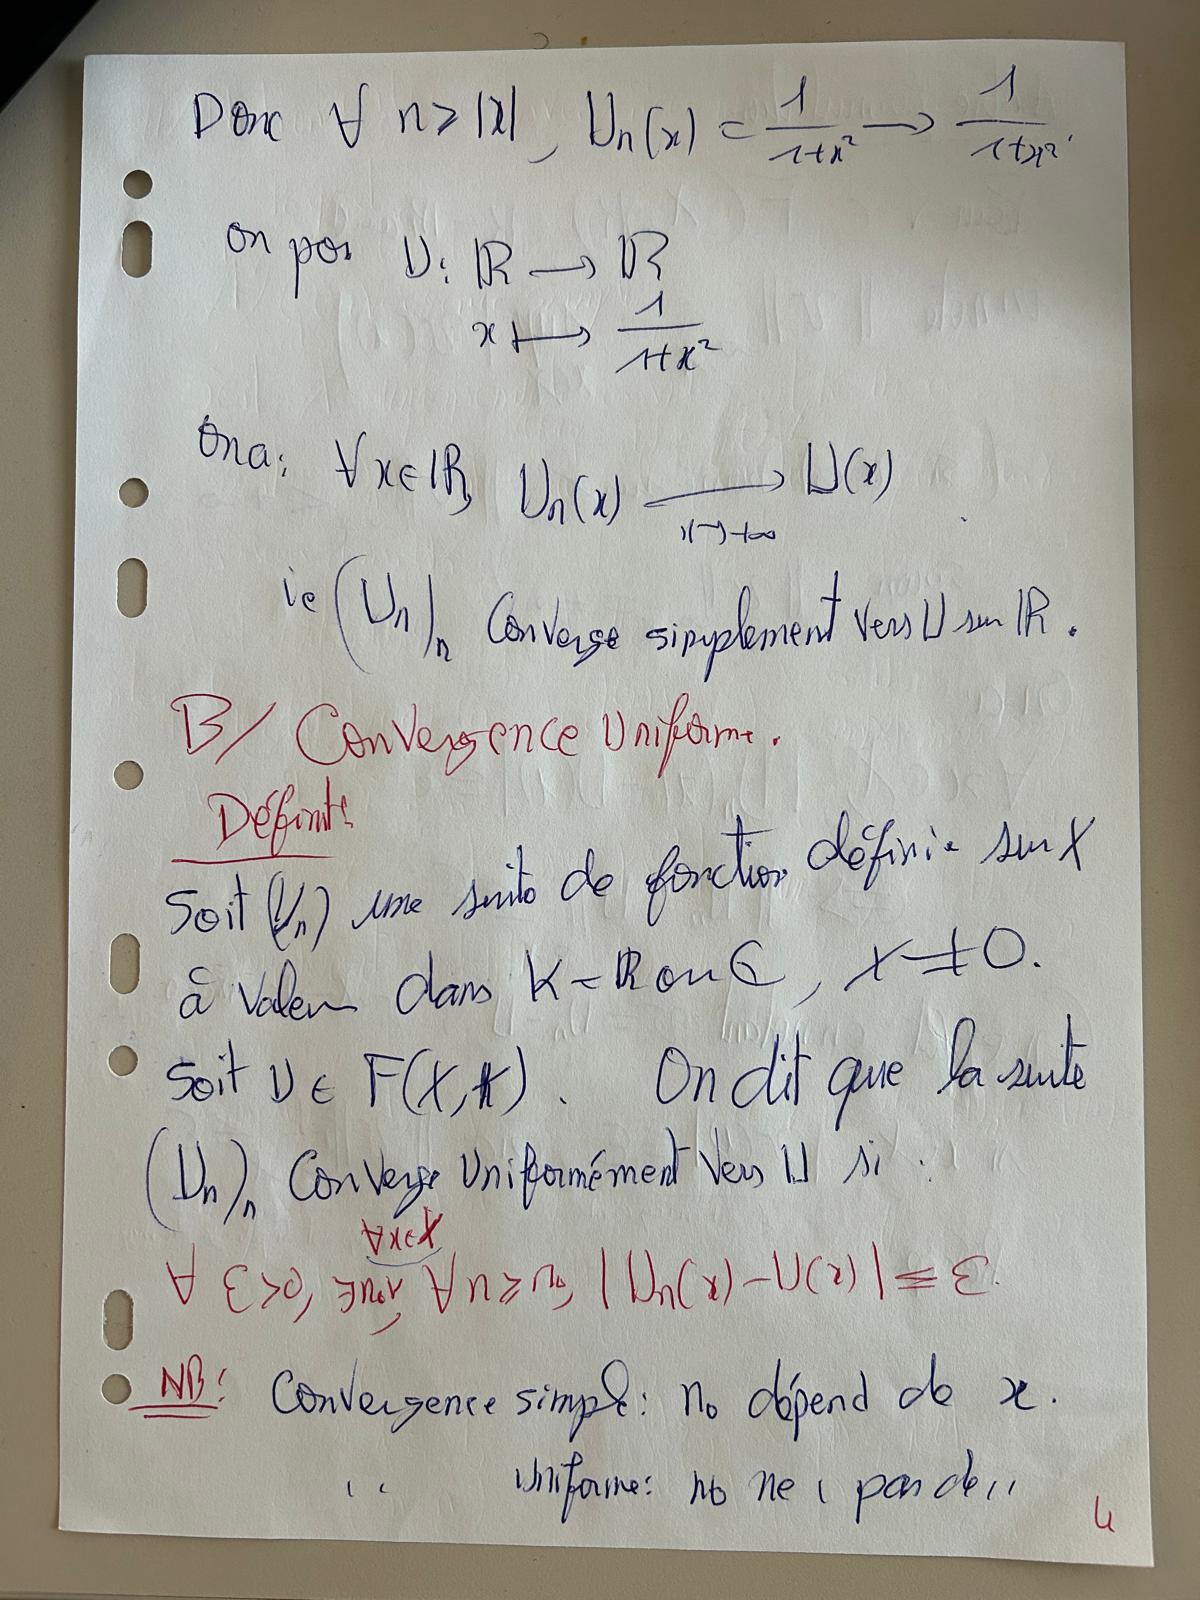 Donc ∀ n ≥ |x|, Un(x) = 1/(1+x²) → 1/(1+x²).
on pose U : ℝ → ℝ
x ↦ 1/(1+x²)
On a : ∀x∈ℝ, Un(x) → U(x)
n→+∞
ie (Un)n Converge simplement vers U sur ℝ.
B/ Convergence Uniforme.
Définit°
Soit (Un) une suite de fonction définie sur X
à valeur dans K = ℝ ou ℂ, X ≠ ∅.
Soit U ∈ F(X,K). On dit que la suite
(Un)n Converge Uniformément vers U si :
∀x∈X
∀ ε>0, ∃n₀∈ℕ, ∀n≥n₀, |Un(x)-U(x)| ≤ ε.
NB : Convergence simple : n₀ dépend de x.
ˌˌ Uniforme : n₀ ne ˌ pas de ˌˌ
4